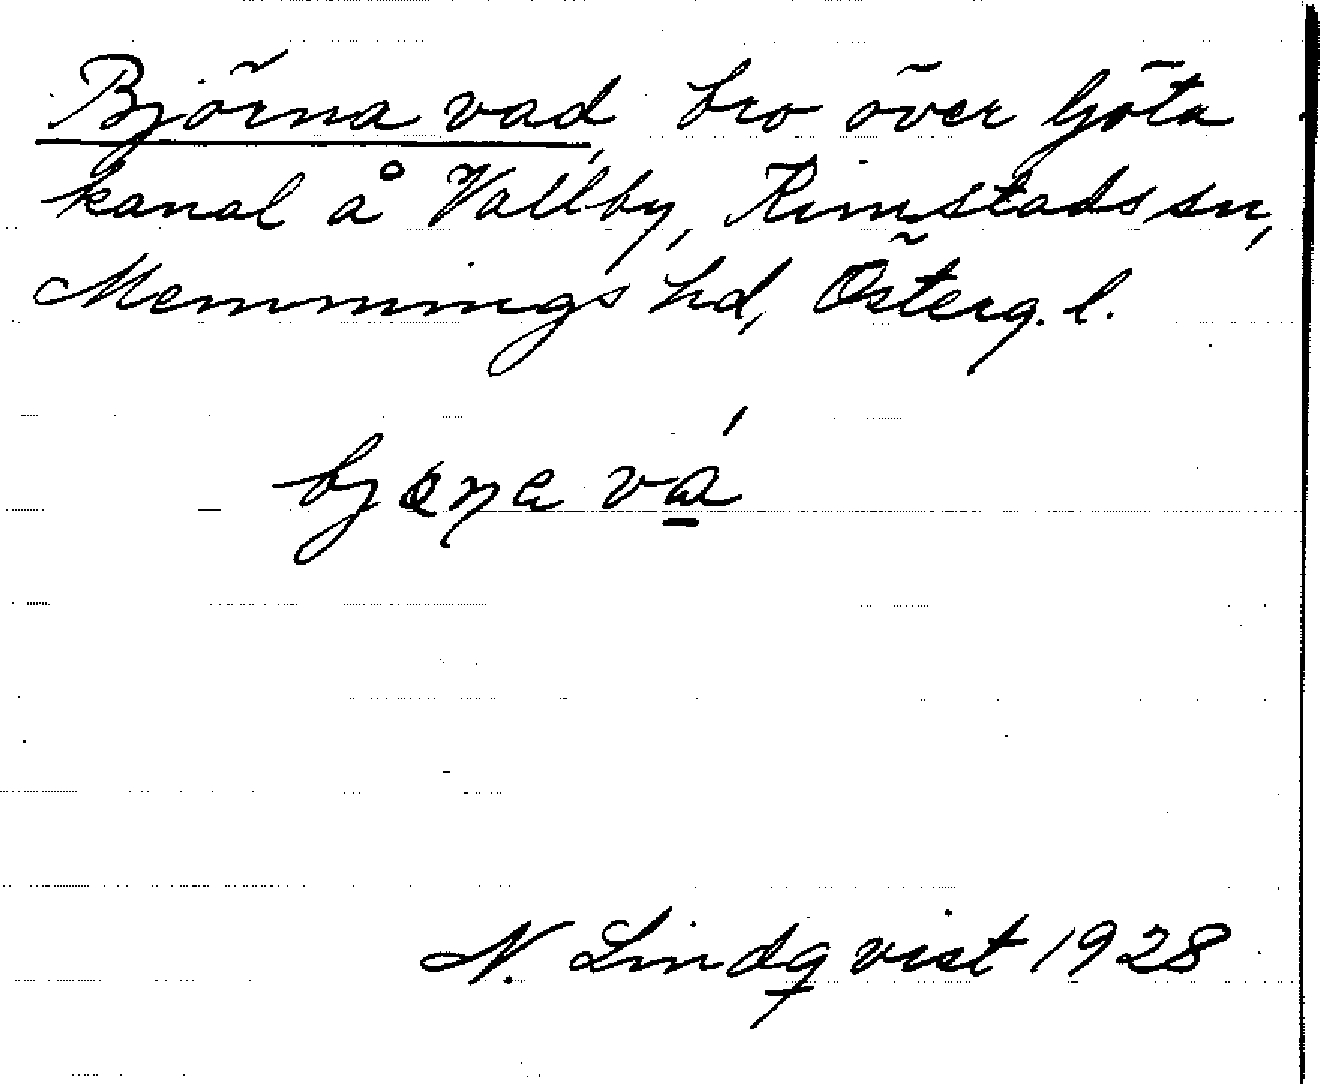 Björna vad, bro över Göta
kanal å Vallby, Rimstads sn,
Memmings hd, Österg. l.
N. Lindqvist 1928